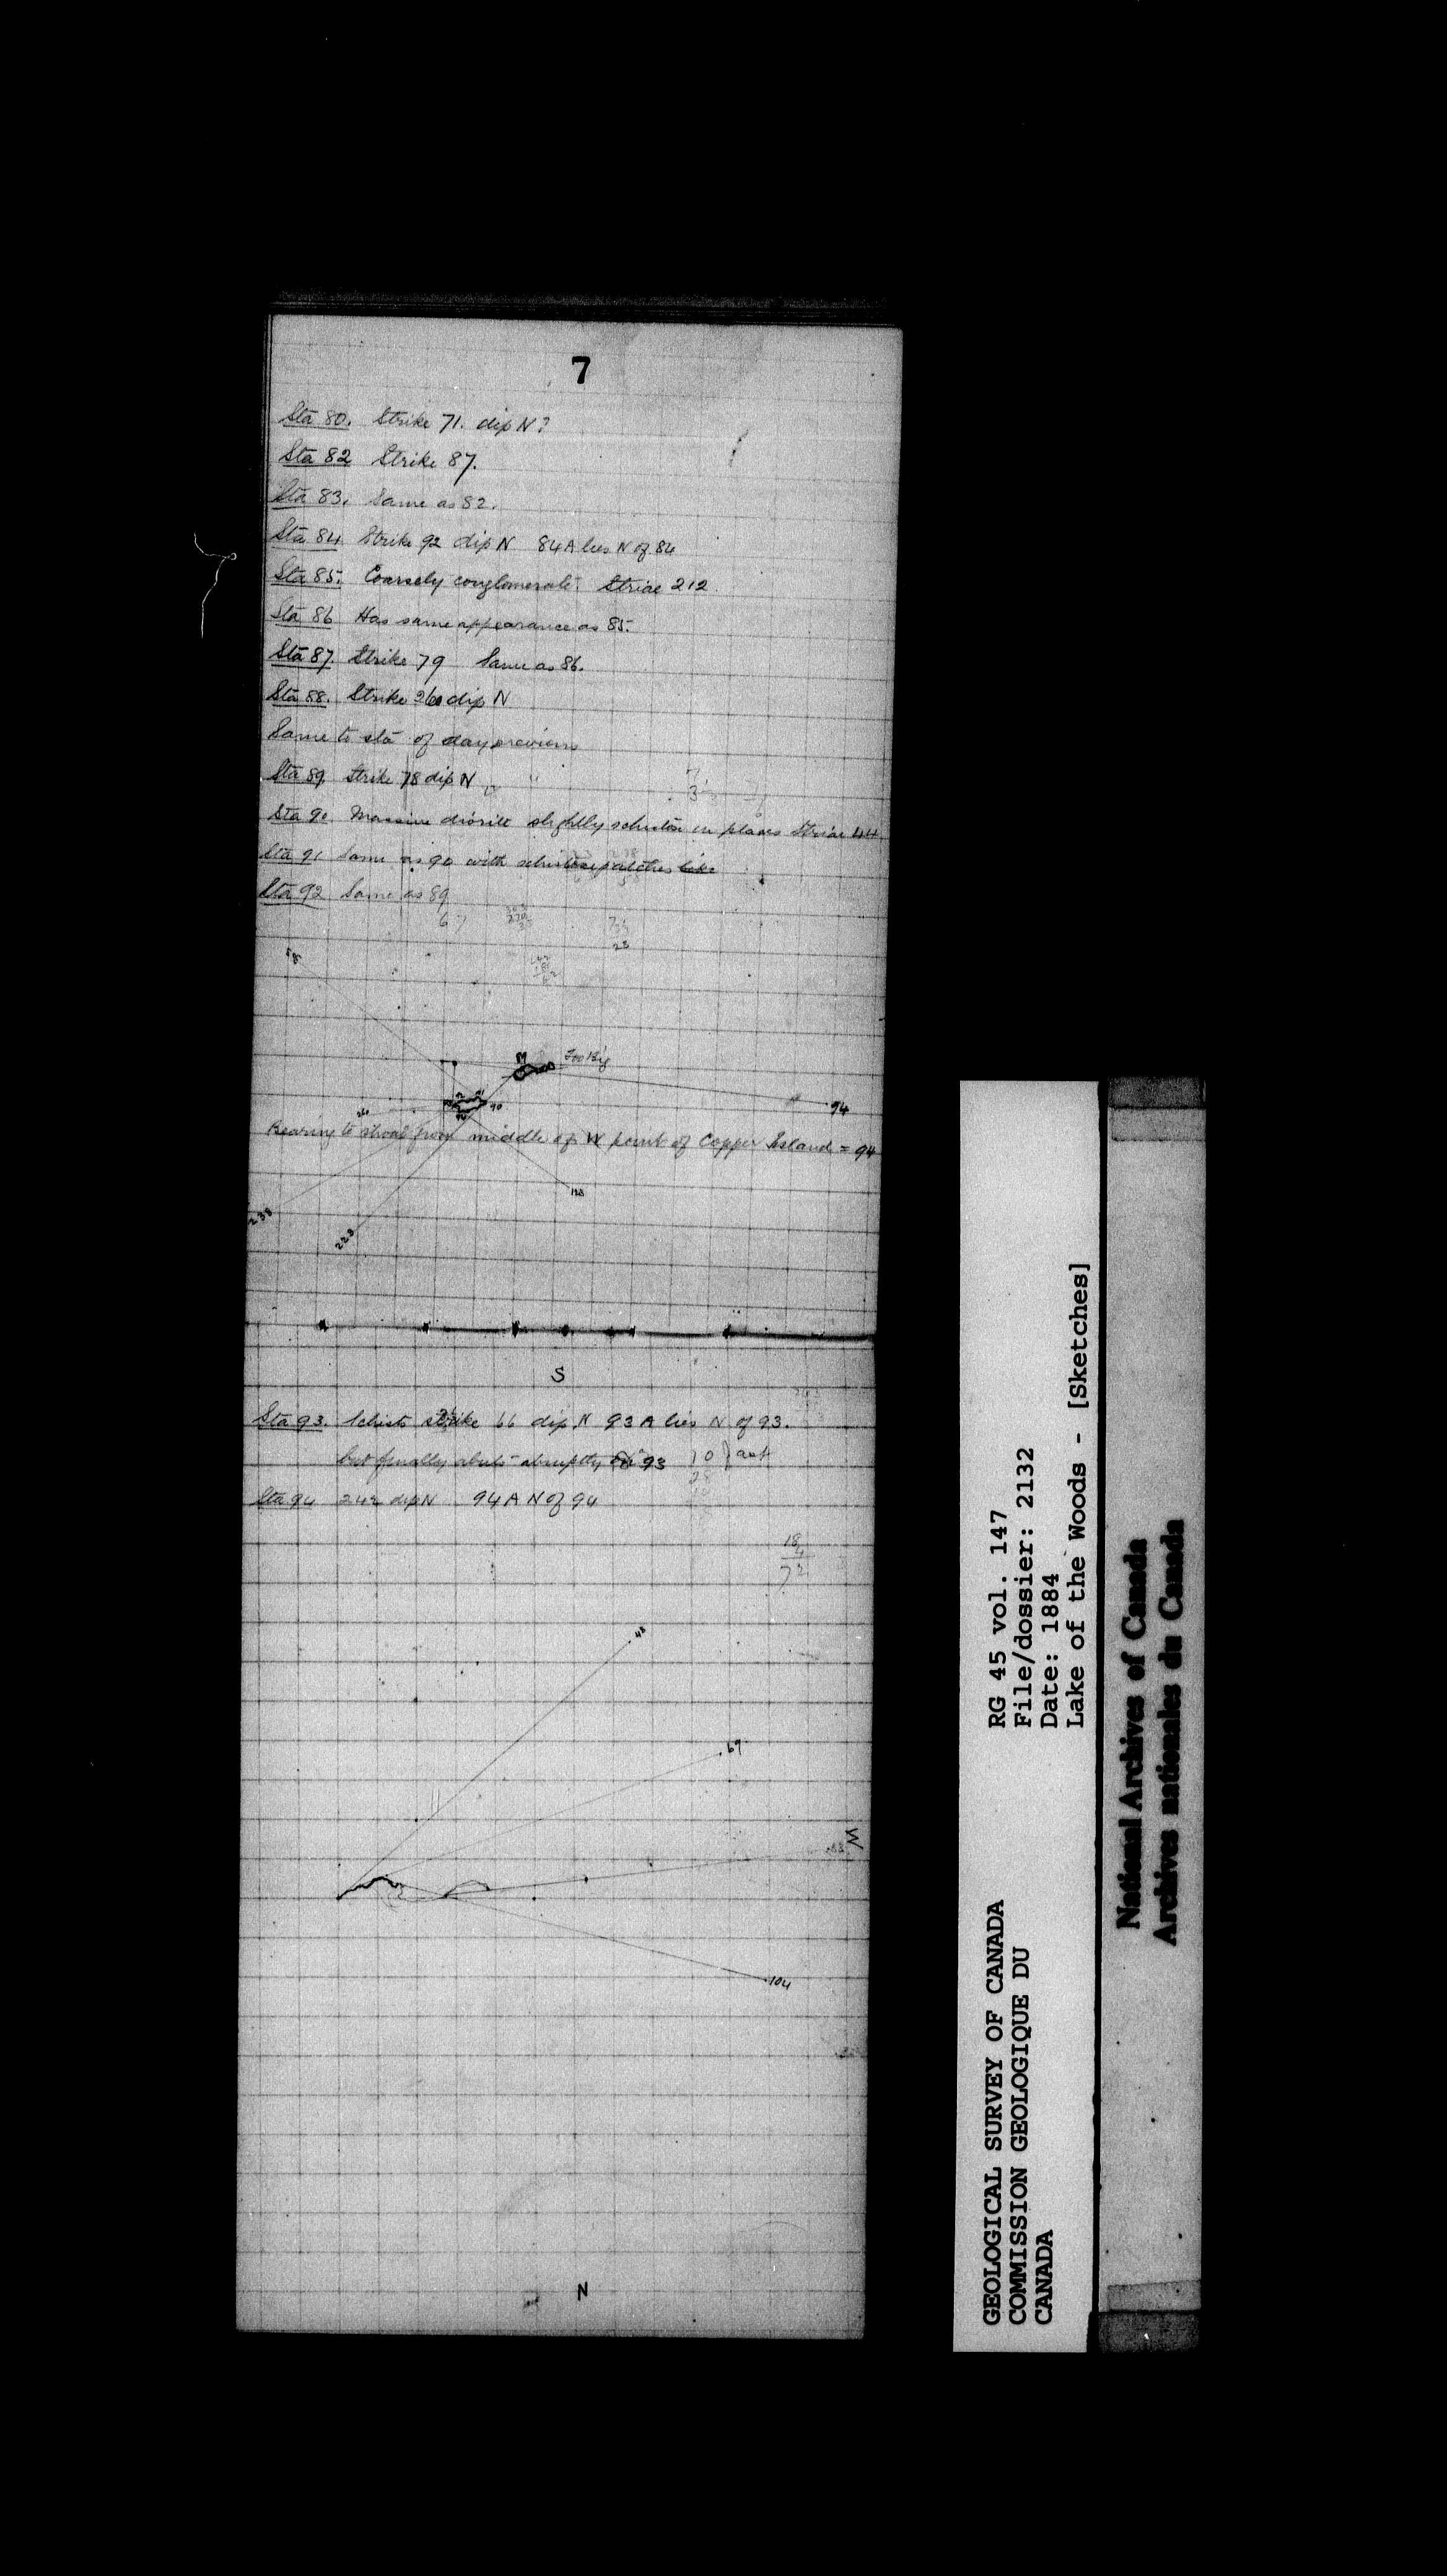 7
Sta 80. Strike 71. dip N?
Sta 82 Strike 87.
Sta 83. Same as 82.
Sta 84. Strike 92 dip N 84 A lies N of 84
Sta 85. Coarsely conglomerate. Striae 212.
Sta 86 Has same appearance as 85.
Sta 87. Strike 79 Same as 86.
Sta 88. Strike 260 dip N
Same to sta of day previous
Sta 89 Strike 78 dip N "
Sta 90 Massive diorite slightly schistose in places Striae 44
Sta 91 Same as 90 with schistose patches like
Sta 92 Same as 89
67
23
M
90
94
260
Bearing to shoal from middle of W point of Copper Island = 94
128
238
223
S
Sta 93. Schists strike 66 dip N 93 A lies N of 93.
but finally abuts abruptly on 93
Sta 94 242 dip N 94 A N of 94
18
4
72
48
69
104
N
RG 45 vol. 147
File/dossier: 2132
Date: 1884
Lake of the Woods - [Sketches]
GEOLOGICAL SURVEY OF CANADA
COMMISSION GEOLOGIQUE DU
CANADA
National Archives of Canada
Archives nationales du Canada